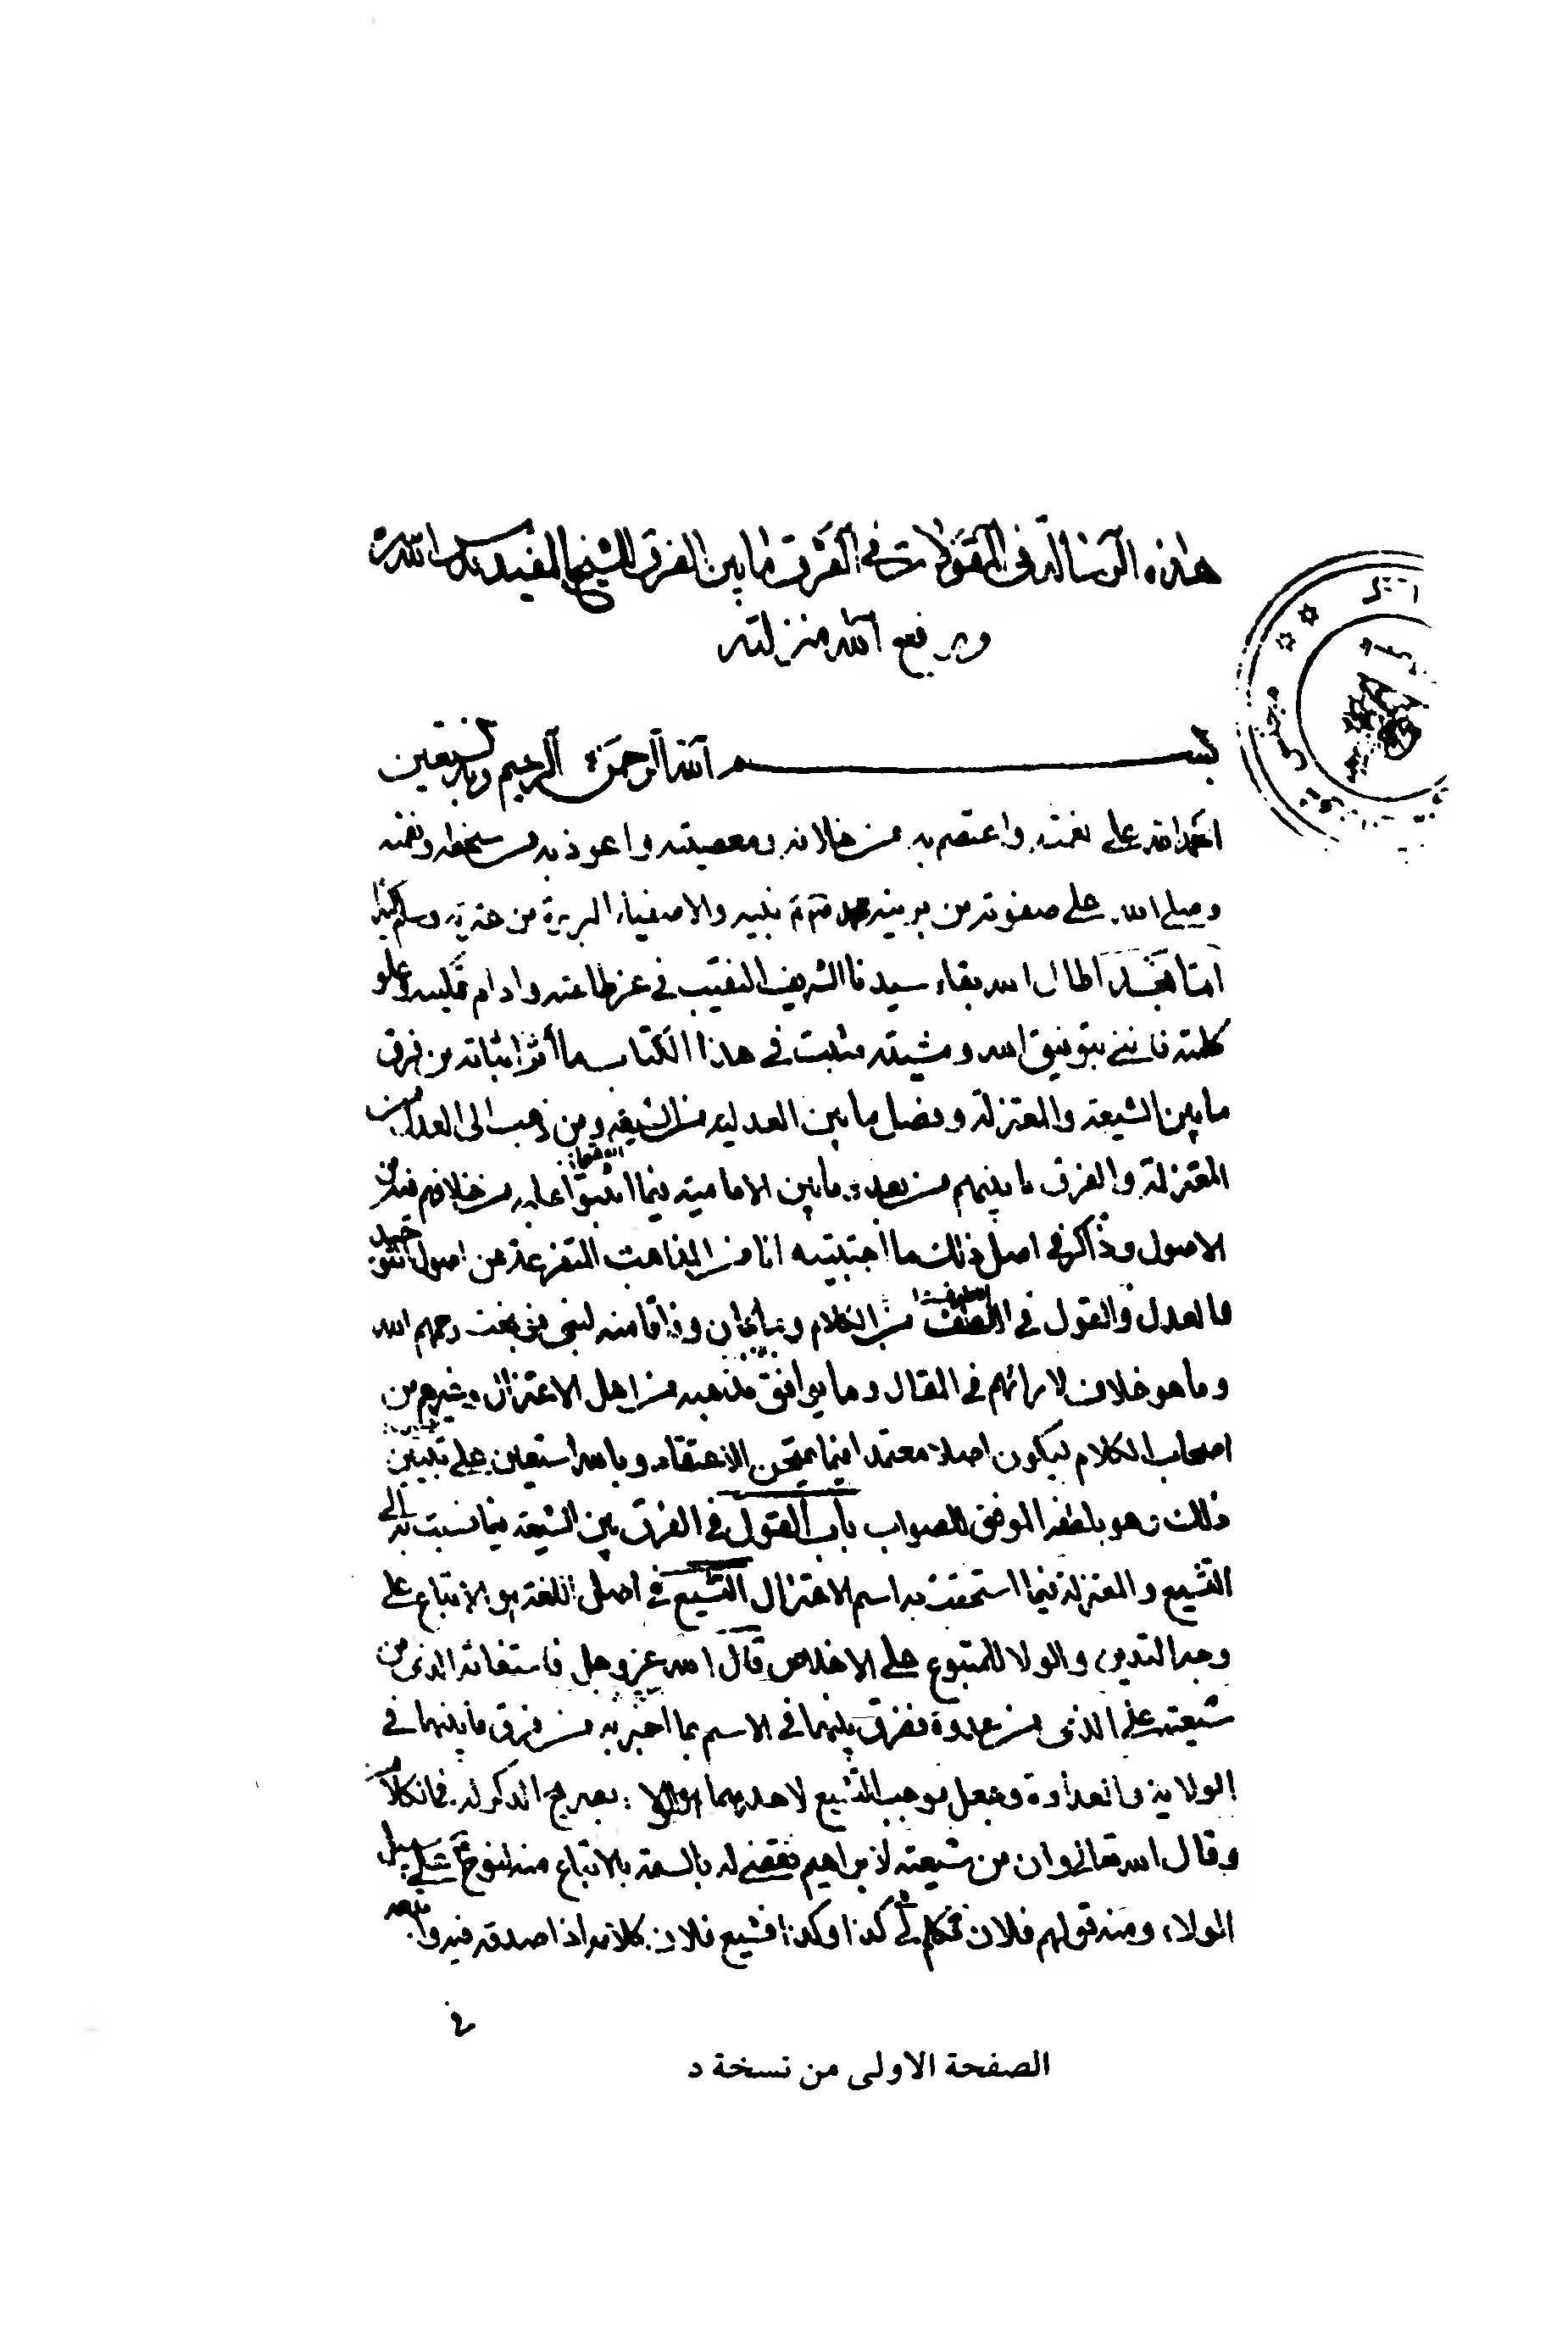 هذه الرسالة في المقولات في الفرق ما بين الفرق للشيخ المفيد
ورفع الله منزلته
بسم الله الرحمن الرحيم وبه نستعين
احمد الله على نعمته واعتصم به من خلافه ومعصيته واعوذ به من سخطه ونقمته
وصلى الله على صفوته من بريته محمد نبيه والاصفياء البررة من عترته وسلم كثيرا
اما بعد اطال الله بقاء سيدنا الشريف النقيب في عز طاعته وادام تمكينه وعلو
كلمته فانني بتوفيق الله ومشيته مثبت في هذا الكتاب ما اثر اثباته من فرق
ما بين الشيعة والمعتزلة وفصل ما بين العدلية من الشيعة ومن ذهب الى العدل من
المعتزلة والفرق ما بينهم من بعد وما بين الامامية فيما اتفقوا عليه من خلافهم فيه من
الاصول وذاكر في اصل ذلك ما اجتبيته انا من المذاهب المتفرعة عن اصول التوحيد
والعدل والقول في اللطيف من الكلام وما كان وفاقا منه لبني نوبخت رحمهم الله
وما هو خلاف لارائهم في المقال وما يوافق مذهبه من اهل الاعتزال وغيرهم من
اصحاب الكلام ليكون اصلا معتمدا فيما يمتحن الاعتقاد وبالله استعين على تبيين
ذلك وهو بلطفه الموفق للصواب باب القول في الفرق بين الشيعة فيما نسبت به الى
التشيع والمعتزلة فيما استحقت به اسم الاعتزال التشيع في اصل اللغة هو الاتباع على
وجه التدين والولا للمتبوع على الاخلاص قال الله عز وجل فاستغاثه الذي من
شيعته على الذي من عدوه ففرق بينهما في الاسم بما اخبر به من فرق ما بينهما في
الولاية والعداوة وجعل موجب التشيع لاحدهما هو الولا بصريح الذكر له
وقال الله تعالى وان من شيعته لابراهيم فقضى له بالسمة بالاتباع منه لنوح على سبيل
الولاء ومنه قولهم فلان تكلم في كذا وكذا فشيع فلان كلامه اذا صدقه فيه واتبعه
في
الصفحة الاولى من نسخة د